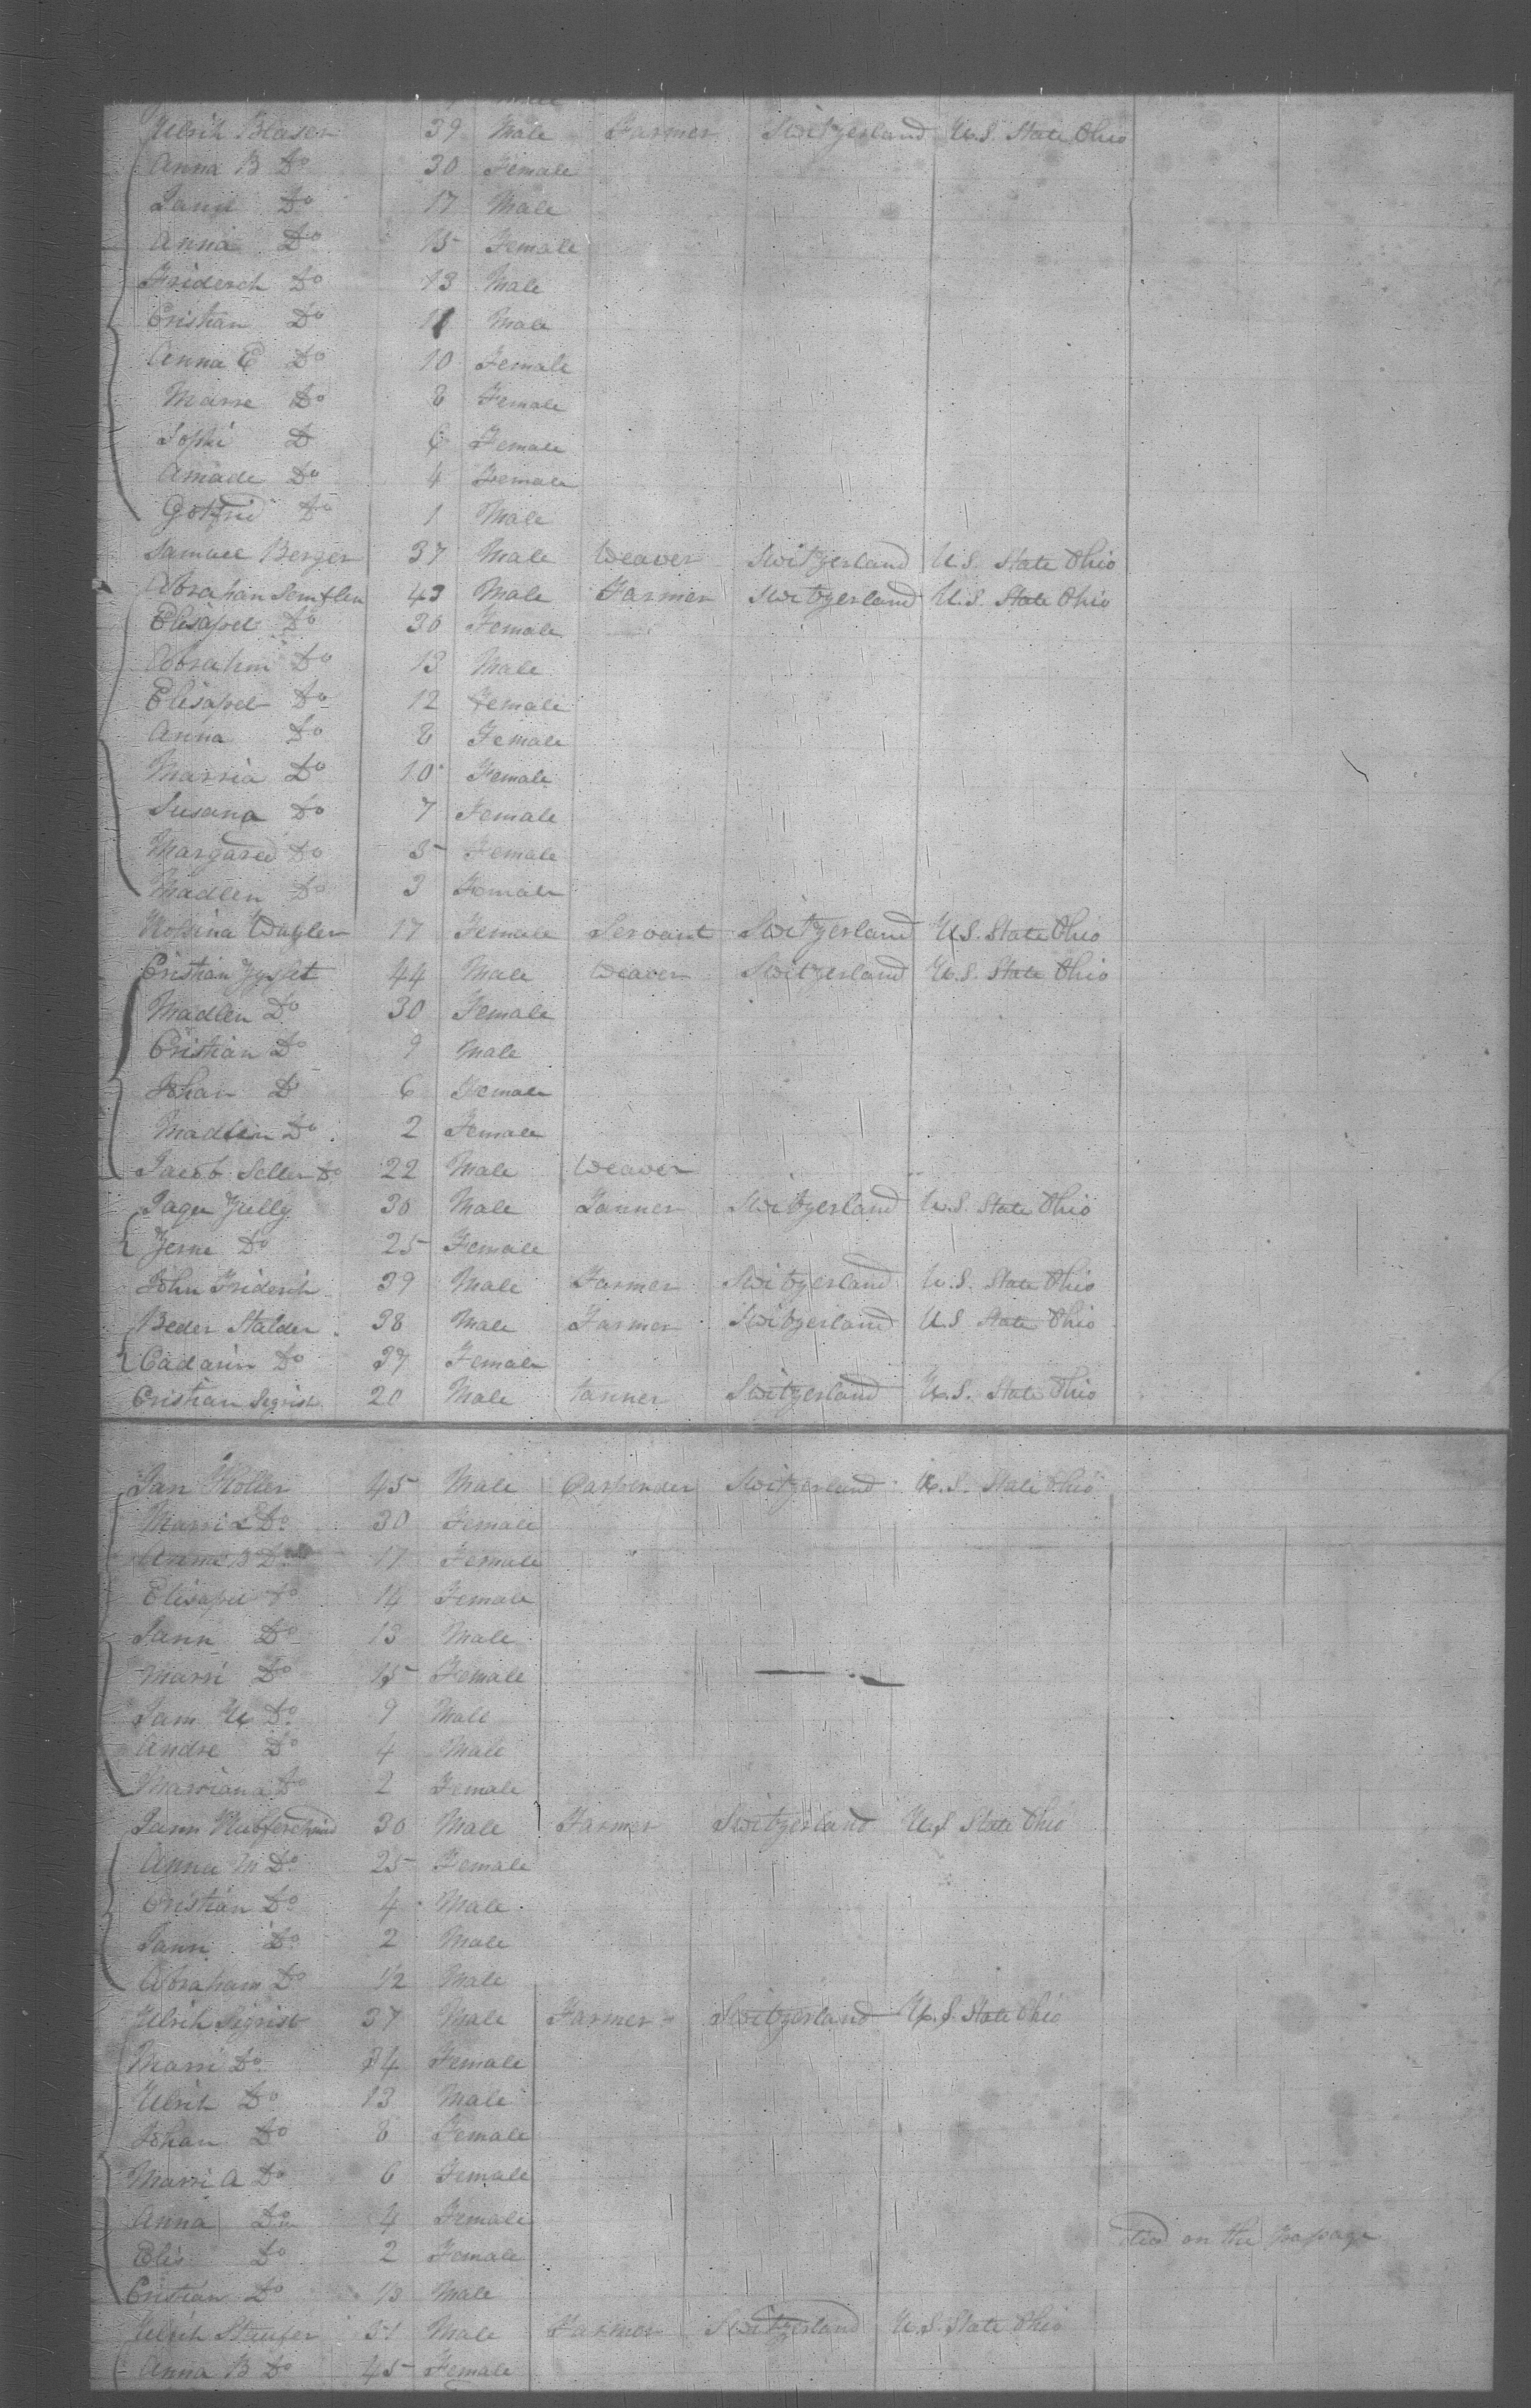 Ulrich Blaser 39 Male Farmer Switzerland U.S. State Ohio
Anna B Do 30 Female
Jann Do 17 Male
Anna Do 15 Female
Friderich Do 13 Male
Cristian Do 11 Male
Anna E Do 10 Female
Marre Do 8 Female
Sophi D 6 Female
Amade Do 4 Female
Gotfrid Do 1 Male
Samuel Berger 37 Male Weaver Switzerland U.S. State Ohio
Abrahan 43 Male Farmer Switzerland U.S. State Ohio
Elisapet Do 30 Female
Abrahm Do 13 Male
Elisapet Do 12 Female
Anna Do 8 Female
Marria Do 10 Female
Susana Do 7 Female
Margared Do 5 Female
Madlen Do 3 Female
Rossina Wagler 17 Female Servant Switzerland U.S. State Ohio
Cristian 44 Male Weaver Switzerland U.S. State Ohio
Madlen Do 30 Female
Cristian Do 9 Male
Johan D 6 Female
Madlen Do 2 Female
Jacob Seller Do 22 Male Weaver
Jaqu Jully 30 Male Tanner Switzerland U.S. State Ohio
Do 25 Female
John Friderich 39 Male Farmer Switzerland U.S. State Ohio
Beder Stalder 38 Male Farmer Switzerland U.S State Ohio
Cadarin Do 37 Female
Cristian Segrist 20 Male tanner Switzerland U.S. State Ohio
Jan 45 Male Carpender Switzerland U.S. State Ohio
Marri Do 30 Female
Anna B Do 17 Female
Elisapet Do 14 Female
Jann Do 13 Male
Marri Do 15 Female
Jam U Do 9 Male
Andre Do 4 Male
Marriana Do 2 Female
Jann 30 Male Farmer Switzerland U.S State Ohio
Anna M Do 25 Female
Cristian Do 4 Male
Jann Do 2 Male
Abraham Do 1/2 Male
Ulrich Sigrist 37 Male Farmer Switzerland U.S. State Ohio
Marri Do 34 Female
Ulrich Do 13 Male
Johan Do 8 Female
Marri A Do 6 Female
Anna Do 4 Female
Elis Do 2 Female died on the passage
Cristian Do Male
Ulrich Staufer 51 Male Farmer Switzerland U.S. State Ohio
Anna B Do 45 Female